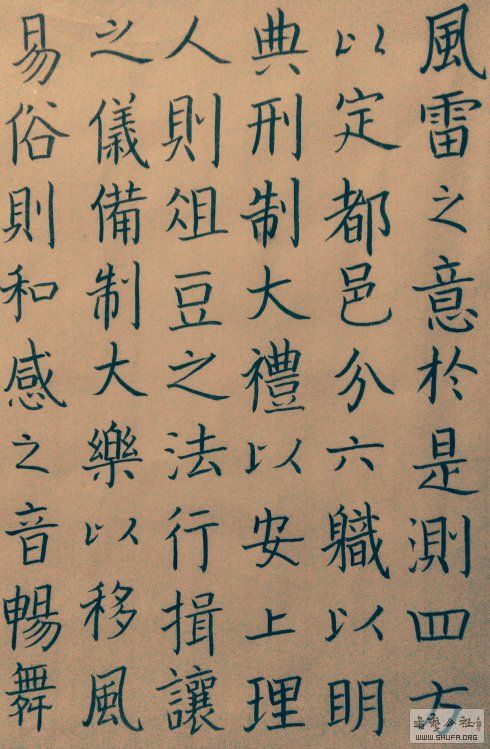 風雷之意於是測四方
以定都邑分六職以明
典刑制大禮以安上理
人則俎豆之法行揖讓
之儀備制大樂以移風
易俗則和感之音暢舞
WWW.SHUFA.ORG